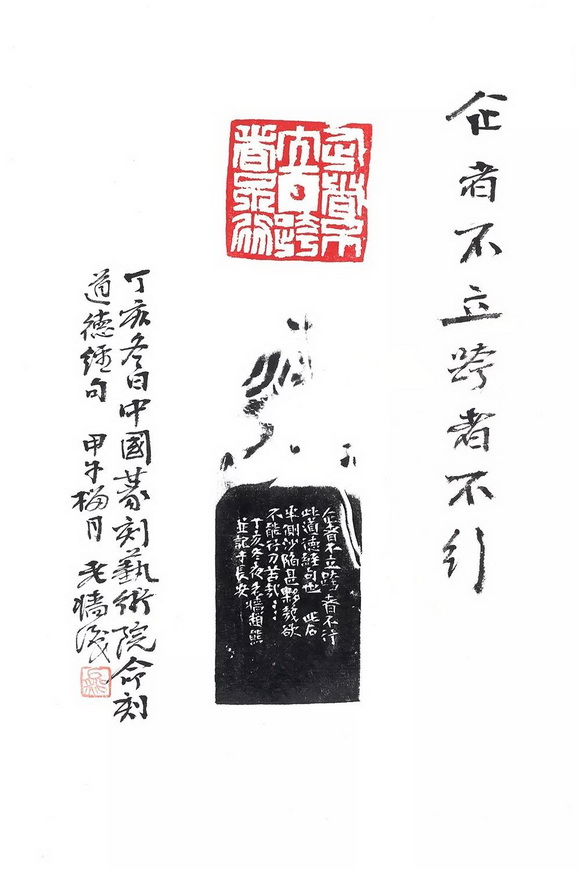 企者不立跨者不行
企者不立跨者不行
企者不立跨者不行
此道德经句也 此石
半侧沙陷是夥哉欲
不能行刀苦哉
丁亥冬夜老墙赵熊
并记于长安
丁亥冬日中國篆刻藝術院命刻
道德經句 甲午梅月 老墙識